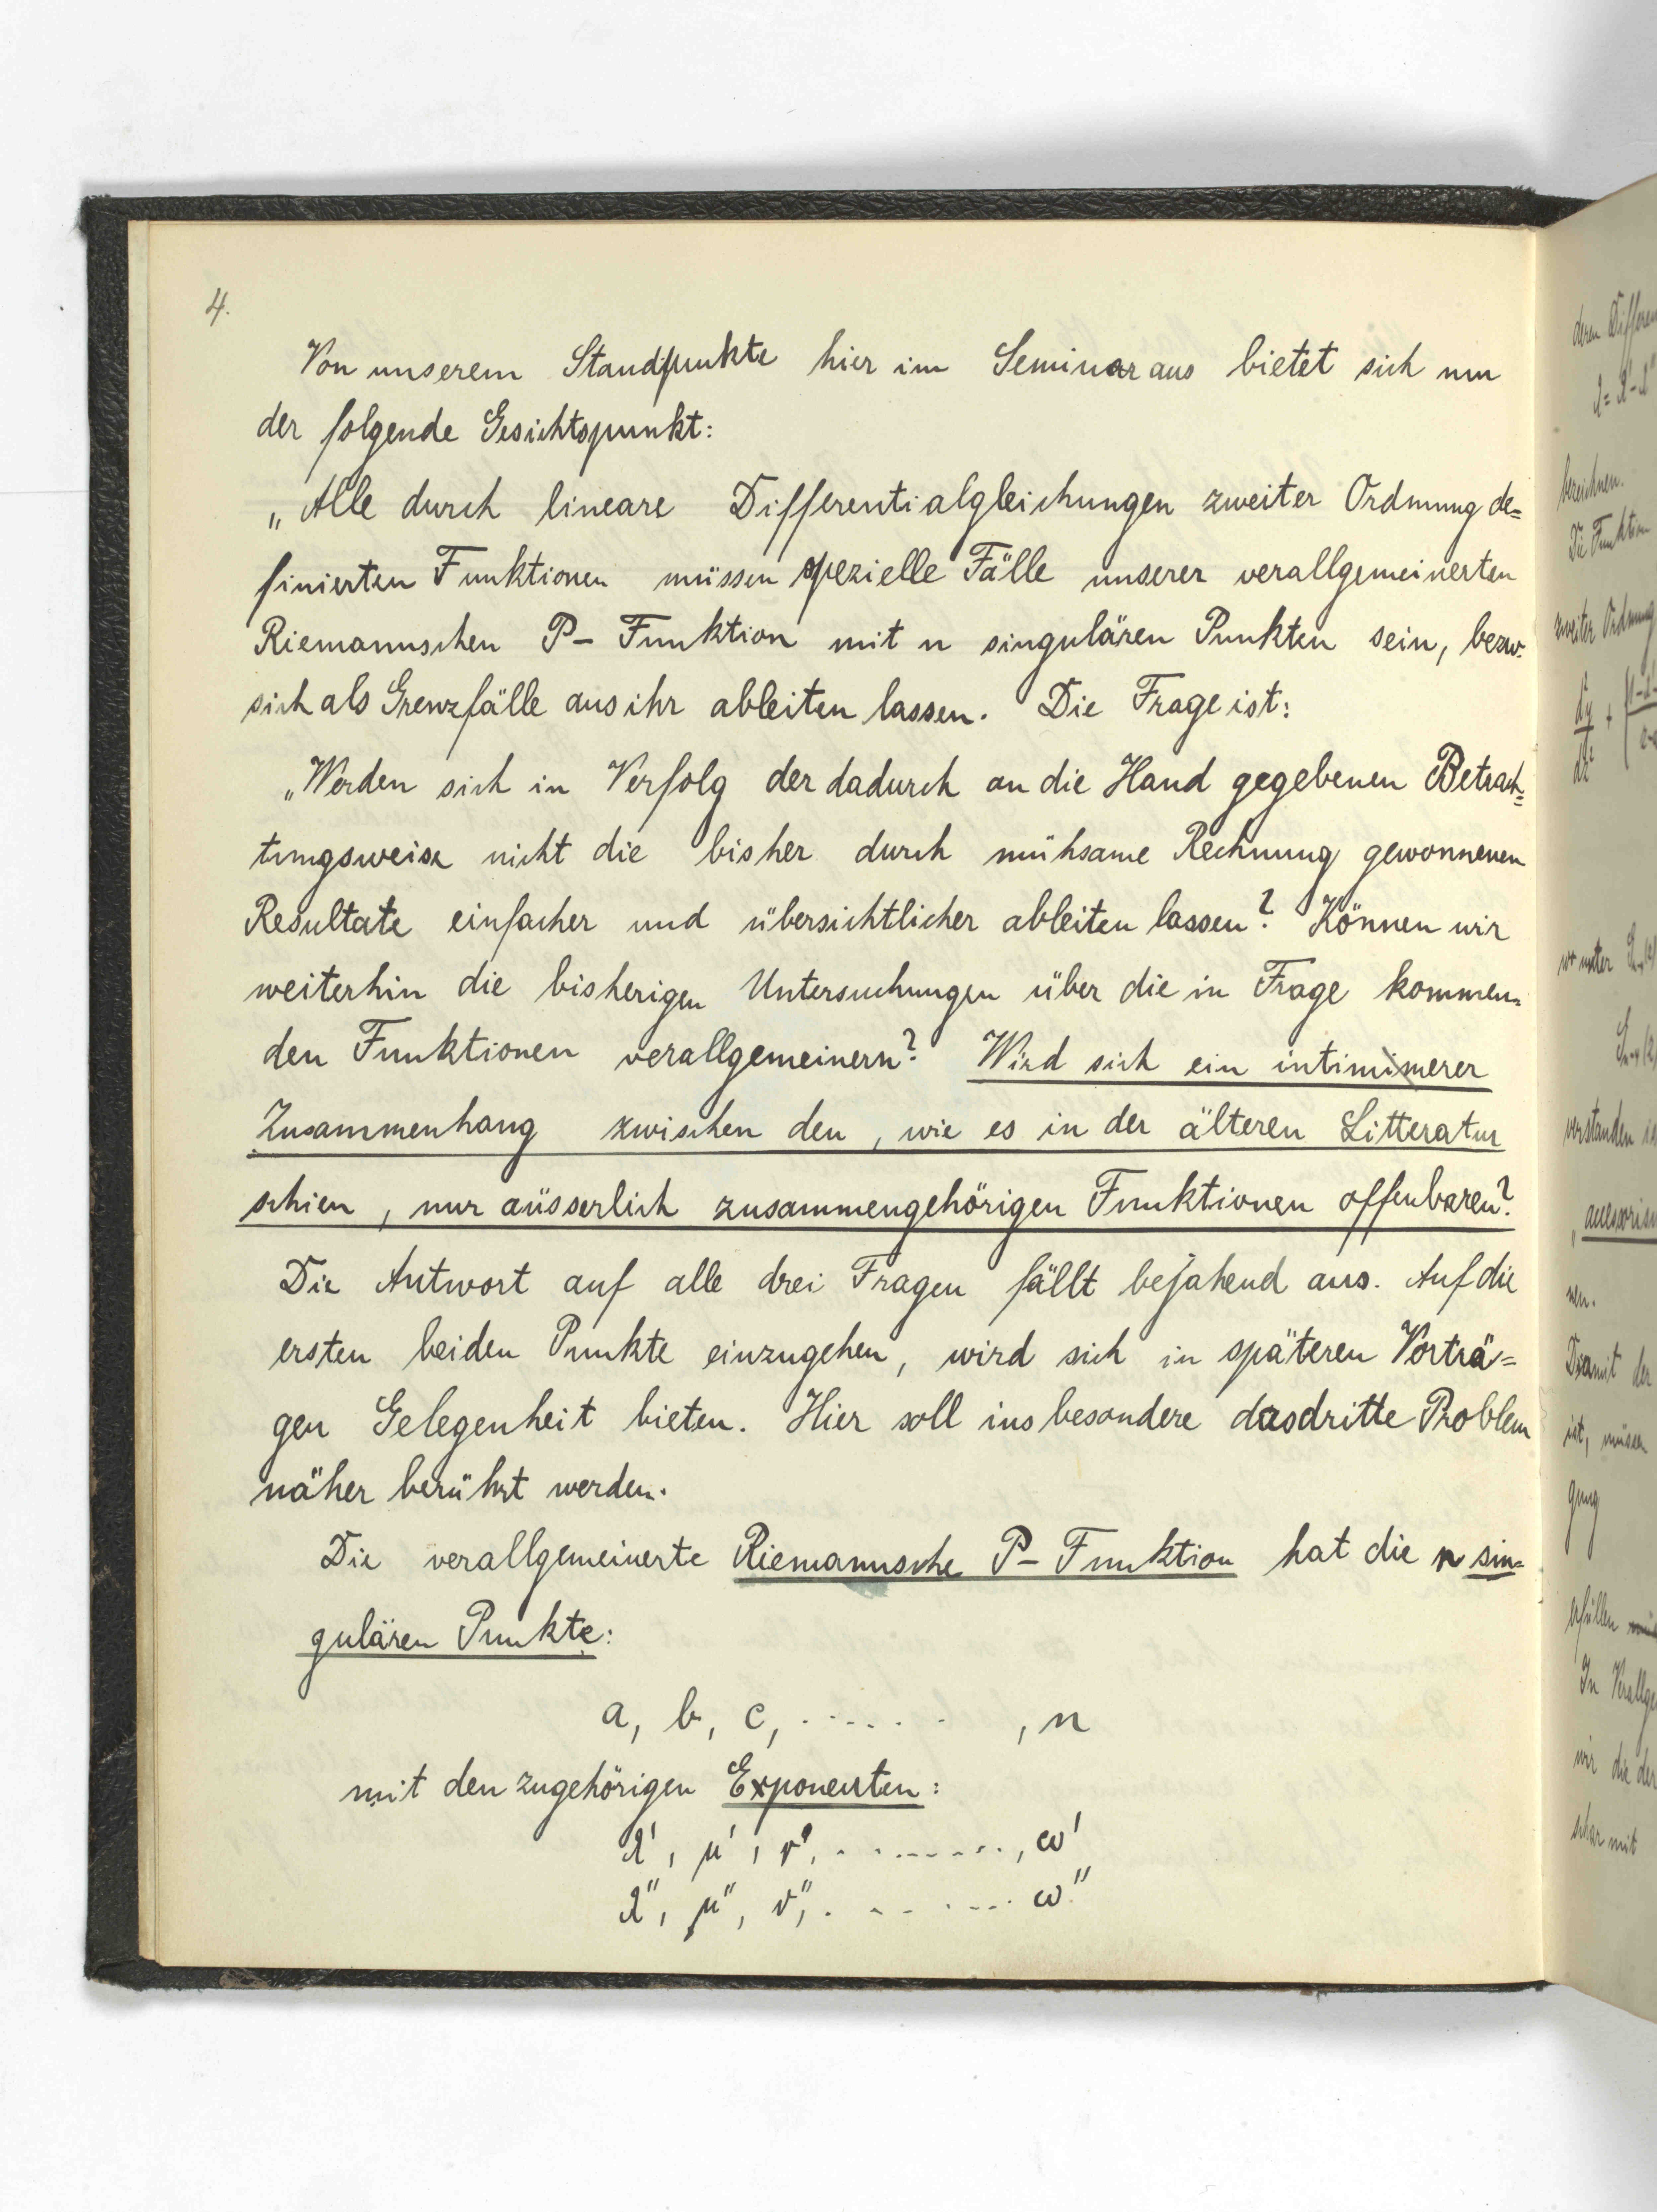 4.
Von unserem Standpunkte hier im Seminar aus bietet sich nun
der folgende Gesichtspunkt:
„Alle durch lineare Differentialgleichungen zweiter Ordnung de=
finierten Funktionen müssen spezielle Fälle unserer verallgemeinerten
Riemannschen P- Funktion mit n singulären Punkten sein, bezw.
sich als Grenzfälle aus ihr ableiten lassen. Die Frage ist:
„Werden sich in Verfolg der dadurch an die Hand gegebenen Betrach=
tungsweise nicht die bisher durch mühsame Rechnung gewonnenen
Resultate einfacher und übersichtlicher ableiten lassen? Können wir
weiterhin die bisherigen Untersuchungen über die in Frage kommen=
den Funktionen verallgemeinern? Wird sich ein intimimerer
Zusammenhang zwischen den, wie es in der älteren Litteratur
schien, nur äusserlich zusammengehörigen Funktionen offenbaren?
Die Antwort auf alle drei Fragen fällt bejahend aus. Auf die
ersten beiden Punkte einzugehen, wird sich in späteren Vorträ=
gen Gelegenheit bieten. Hier soll insbesondere das dritte Problem
näher berührt werden.
Die verallgemeinerte Riemannsche P- Funktion hat die n sin=
gulären Punkte:
a, b, c, ......, n
mit den zugehörigen Exponenten:
λ', μ', ν', ........, ω'
λ'', μ'', ν'', ....... ω''
deren
λ = λ' - λ''
bezeichnen.
Die Funktion
zweiter Ordnung
verstanden
nen.
Damit der
ist, müssen
gung
erfüllen
In
wir die der
schar mit